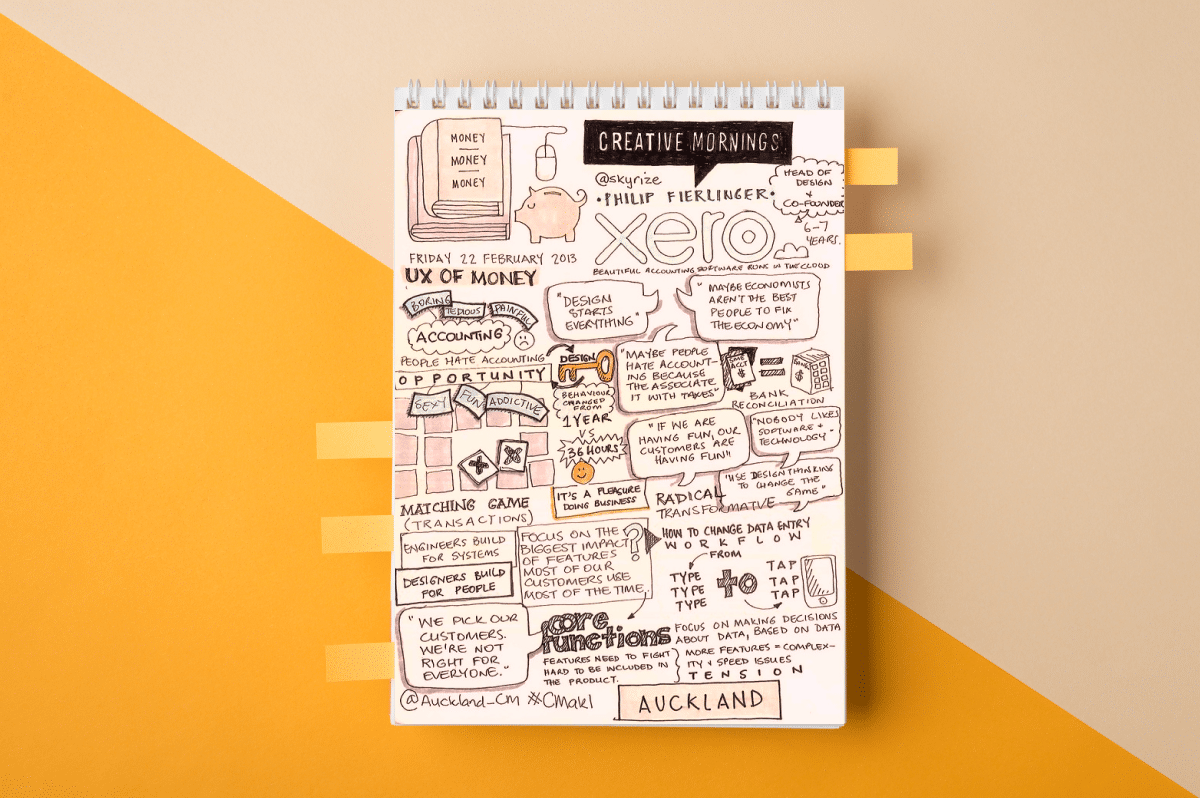 MONEY
MONEY
MONEY
CREATIVE MORNINGS
@skyrize
• PHILIP FIERLINGER •
HEAD OF
DESIGN
&
CO-FOUNDER
6-7
YEARS.
xero
BEAUTIFUL ACCOUNTING SOFTWARE RUNS IN THE CLOUD
FRIDAY 22 FEBRUARY 2013
UX OF MONEY
BORING
TEDIOUS
PAINFUL
ACCOUNTING
PEOPLE HATE ACCOUNTING
OPPORTUNITY
SEXY
FUN
ADDICTIVE
MATCHING GAME
(TRANSACTIONS)
"DESIGN
STARTS
EVERYTHING"
"MAYBE ECONOMISTS
AREN'T THE BEST
PEOPLE TO FIX
THE ECONOMY"
DESIGN
BEHAVIOUR
CHANGED
FROM
1 YEAR
VS
36 HOURS
IT'S A PLEASURE
DOING BUSINESS
"MAYBE PEOPLE
HATE ACCOUNT-
ING BECAUSE
THE ASSOCIATE
IT WITH TAXES"
$
=
$
BANK
RECONCILIATION
"IF WE ARE
HAVING FUN, OUR
CUSTOMERS ARE
HAVING FUN!"
"NOBODY LIKES
SOFTWARE +
TECHNOLOGY"
"USE DESIGN THINKING
TO CHANGE THE
GAME"
RADICAL
TRANSFORMATIVE
ENGINEERS BUILD
FOR SYSTEMS
DESIGNERS BUILD
FOR PEOPLE
FOCUS ON THE
BIGGEST IMPACT
OF FEATURES
MOST OF OUR
CUSTOMERS USE
MOST OF THE TIME.
?
HOW TO CHANGE DATA ENTRY
WORKFLOW
FROM
TYPE
TYPE
TYPE
to
TAP
TAP
TAP
"WE PICK OUR
CUSTOMERS.
WE'RE NOT
RIGHT FOR
EVERYONE."
core
functions
FEATURES NEED TO FIGHT
HARD TO BE INCLUDED IN
THE PRODUCT.
FOCUS ON MAKING DECISIONS
ABOUT DATA, BASED ON DATA
MORE FEATURES = COMPLEX-
ITY + SPEED ISSUES
TENSION
@Auckland_CM #CMakl
AUCKLAND